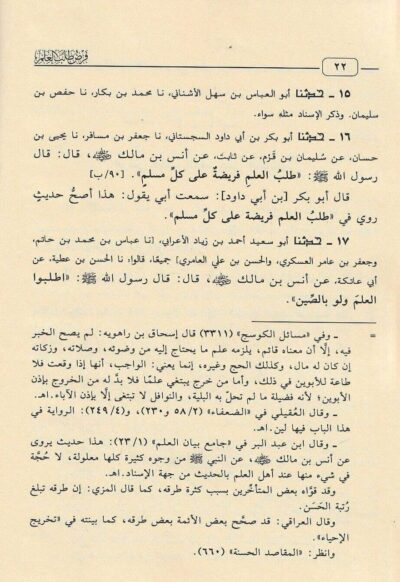 فرض طلب العلم
٢٢
١٥ ـ حدثنا أبو العباس بن سهل الأشناني، نا محمد بن بكار، نا حفص بن
سليمان. وذكر الإسناد مثله سواء.
١٦ ـ حدثنا أبو بكر بن أبي داود السجستاني، نا جعفر بن مسافر، نا يحيى بن
حسان، عن سُليمان بن قَرْم، عن ثابت، عن أنس بن مالك رضي الله عنه، قال: قال
رسول الله ﷺ: «طلبُ العلمِ فريضةٌ على كلِّ مسلمٍ». [٩٠/ب]
قال أبو بكر [بن أبي داود]: سمعت أبي يقول: هذا أصحُّ حديثٍ
روي في «طلب العلم فريضة على كل مسلم».
١٧ ـ حدثنا أبو سعيد أحمد بن زياد الأعرابي، [نا عباس بن محمد بن حاتم،
وجعفر بن عامر العسكري، والحسن بن علي العامري] جميعًا، قالوا: نا الحسن بن عطية، عن
أبي عاتكة، عن أنس بن مالك رضي الله عنه، قال: قال رسول الله ﷺ: «اطلبوا
العلمَ ولو بالصِّين».
= ـ وفي «مسائل الكوسج» (٣٣١١) قال إسحاق بن راهويه: لم يصح الخبر
فيه، إلَّا أن معناه قائم، يلزمه علم ما يحتاج إليه من وضوئه، وصلاته، وزكاته
إن كان له مال، وكذلك الحج وغيره، إنما يعني: الواجب، أنها إذا وقعت فلا
طاعة للأبوين في ذلك، وأما من خرج يبتغي علمًا فلا بدَّ له من الخروج بإذن
الأبوين؛ لأنه فضيلة ما لم تحل به البلية، والنوافل لا تبتغى إلَّا بإذن الآباء.اهـ.
ـ وقال العُقيلي في «الضعفاء» (٥٨/٢ و٢٣٠)، و(٢٤٩/٤): الرواية في
هذا الباب فيها لين.اهـ.
ـ وقال ابن عبد البر في «جامع بيان العلم» (٢٣/١): هذا حديث يروى
عن أنس بن مالك رضي الله عنه، عن النبي ﷺ من وجوه كثيرة كلها معلولة، لا حُجَّة
في شيء منها عند أهل العلم بالحديث من جهة الإسناد.اهـ.
وقد قوَّاه بعض المتأخِّرين بسبب كثرة طرقه، كما قال المزي: إن طرقه تبلغ
رُتبة الحَسَن.
وقال العراقي: قد صحَّح بعض الأئمة بعض طرقه، كما بينته في «تخريج
الإحياء».
وانظر: «المقاصد الحسنة» (٦٦٠).